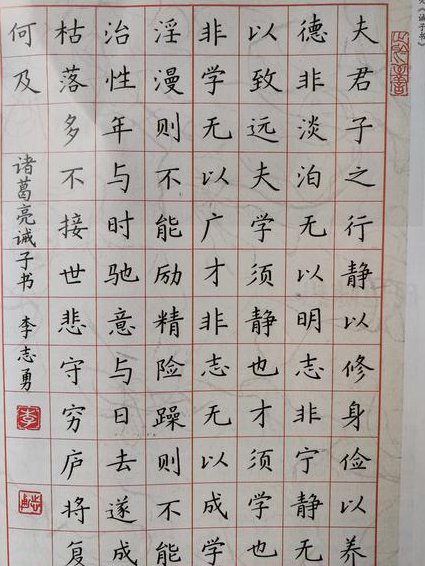 夫君子之行静以修身俭以养
德非淡泊无以明志非宁静无
以致远夫学须静也才须学也
非学无以广才非志无以成学
淫漫则不能励精险躁则不能
治性年与时驰意与日去遂成
枯落多不接世悲守穷庐将复
何及
诸葛亮诫子书 李志勇
李
《诫子书》